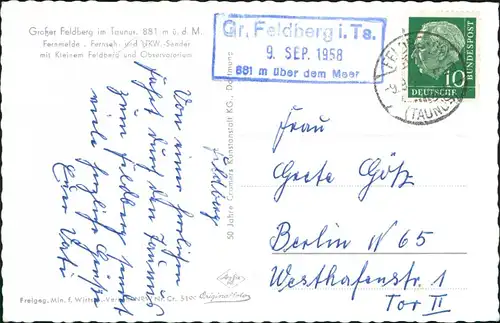 Großer Feldberg im Taunus. 881 m ü. d. M.
Fernmelde-, Fernseh- und UKW-Sender
mit Kleinem Feldberg und Observatorium
Gr. Feldberg i. Ts.
9. SEP. 1958
881 m über dem Meer
10
DEUTSCHE
BUNDESPOST
(TAUNUS)
Feldberg
Von einer herrlichen
Fahrt durch den Taunus
zum Feldberg sendet
viele herzliche Grüße
Euer Vati
50 Jahre Cramers Kunstanstalt KG., Dortmund
Frau
Grete Götz
Berlin W 65
Westhafenstr. 1
Tor II
Freigeg. Min. f. Wirtsch.
Cr. 5300
Original-Foto